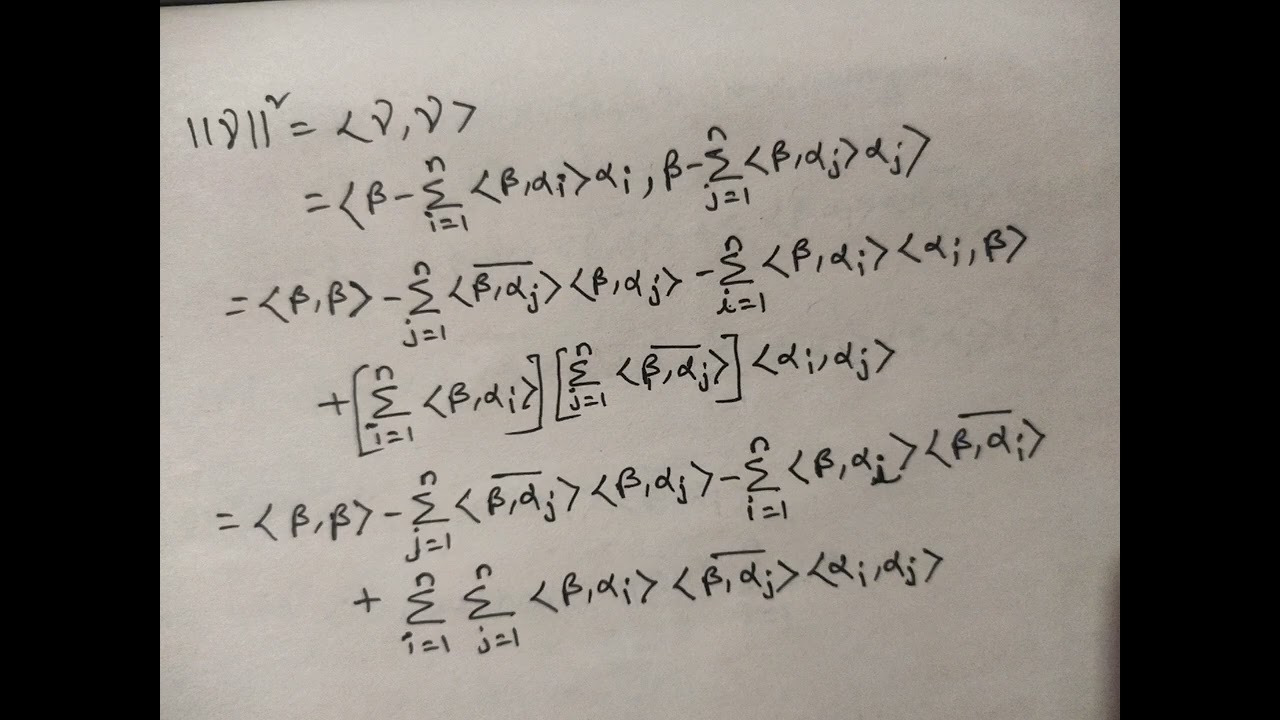 ||ν||² = <ν, ν>
= <β - ∑_{i=1}^{n} <β, α_i> α_i, β - ∑_{j=1}^{n} <β, α_j> α_j>
= <β, β> - ∑_{j=1}^{n} <\overline{β, α_j}> <β, α_j> - ∑_{i=1}^{n} <β, α_i> <α_i, β>
+ [∑_{i=1}^{n} <β, α_i>] [∑_{j=1}^{n} <\overline{β, α_j}>] <α_i, α_j>
= <β, β> - ∑_{j=1}^{n} <\overline{β, α_j}> <β, α_j> - ∑_{i=1}^{n} <β, α_i> <\overline{β, α_i}>
+ ∑_{i=1}^{n} ∑_{j=1}^{n} <β, α_i> <\overline{β, α_j}> <α_i, α_j>